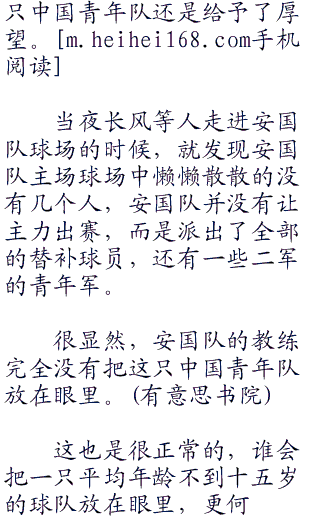 只中国青年队还是给予了厚
望。[m.heihei168.com手机
阅读]
当夜长风等人走进安国
队球场的时候，就发现安国
队主场球场中懒懒散散的没
有几个人，安国队并没有让
主力出赛，而是派出了全部
的替补球员，还有一些二军
的青年军。
很显然，安国队的教练
完全没有把这只中国青年队
放在眼里。(有意思书院)
这也是很正常的，谁会
把一只平均年龄不到十五岁
的球队放在眼里，更何